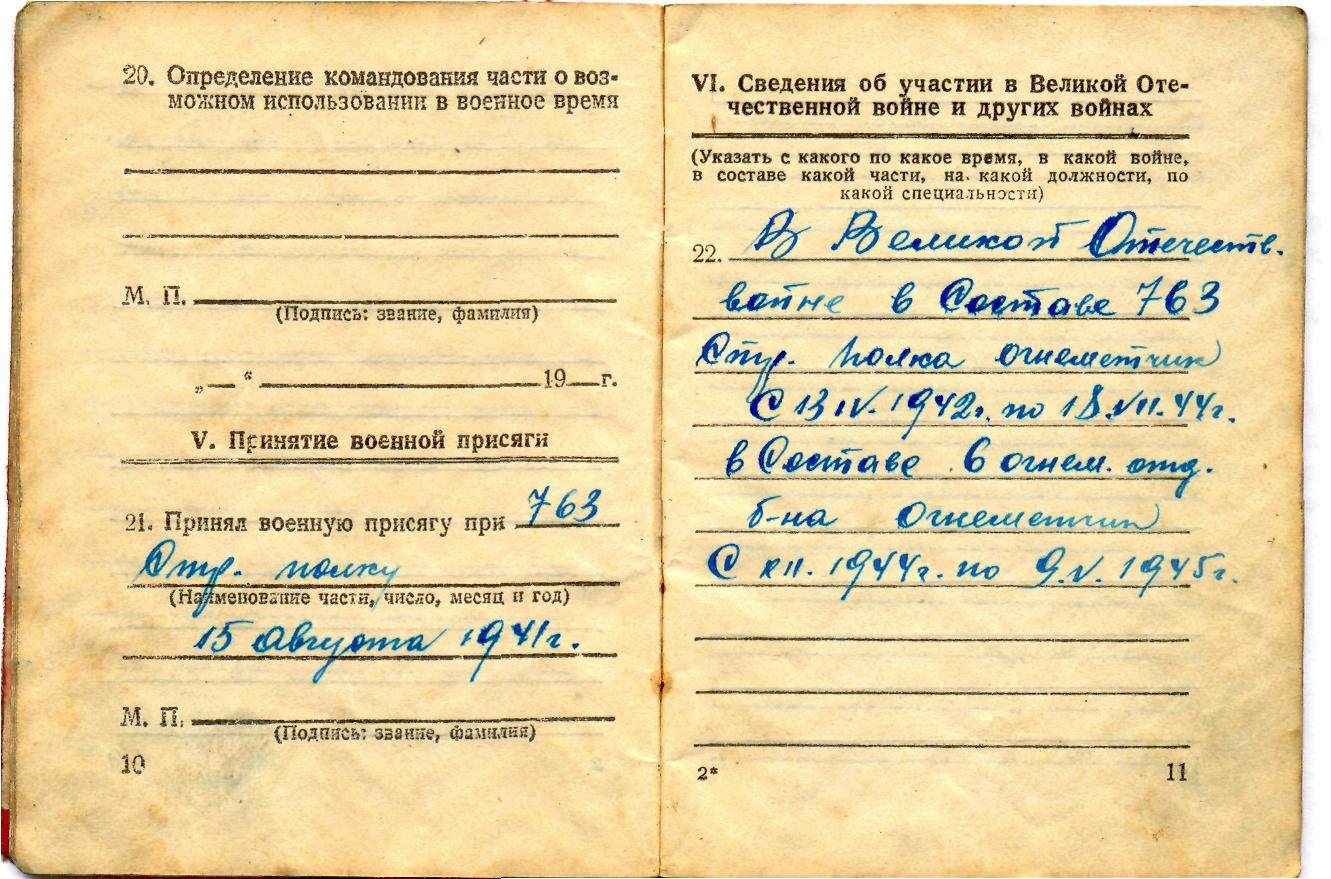 20. Определение командования части о воз-
можном использовании в военное время
М. П.
(Подпись: звание, фамилия)
„— “ 19 г.
V. Принятие военной присяги
21. Принял военную присягу при 763
Стр. полку
(Наименование части, число, месяц и год)
15 августа 1941г.
М. П.
(Подпись: звание, фамилия)
10
VI. Сведения об участии в Великой Оте-
чественной войне и других войнах
(Указать с какого по какое время, в какой войне,
в составе какой части, на какой должности, по
какой специальности)
22. В Великой Отечеств.
войне в Составе 763
Стр. полка огнеметчик
С 13 IV. 1942г. по 18.VII.44г.
в Составе 6 огнем. отд.
б-на огнеметчик
С XII. 1944г. по 9.V. 1945г.
2*
11